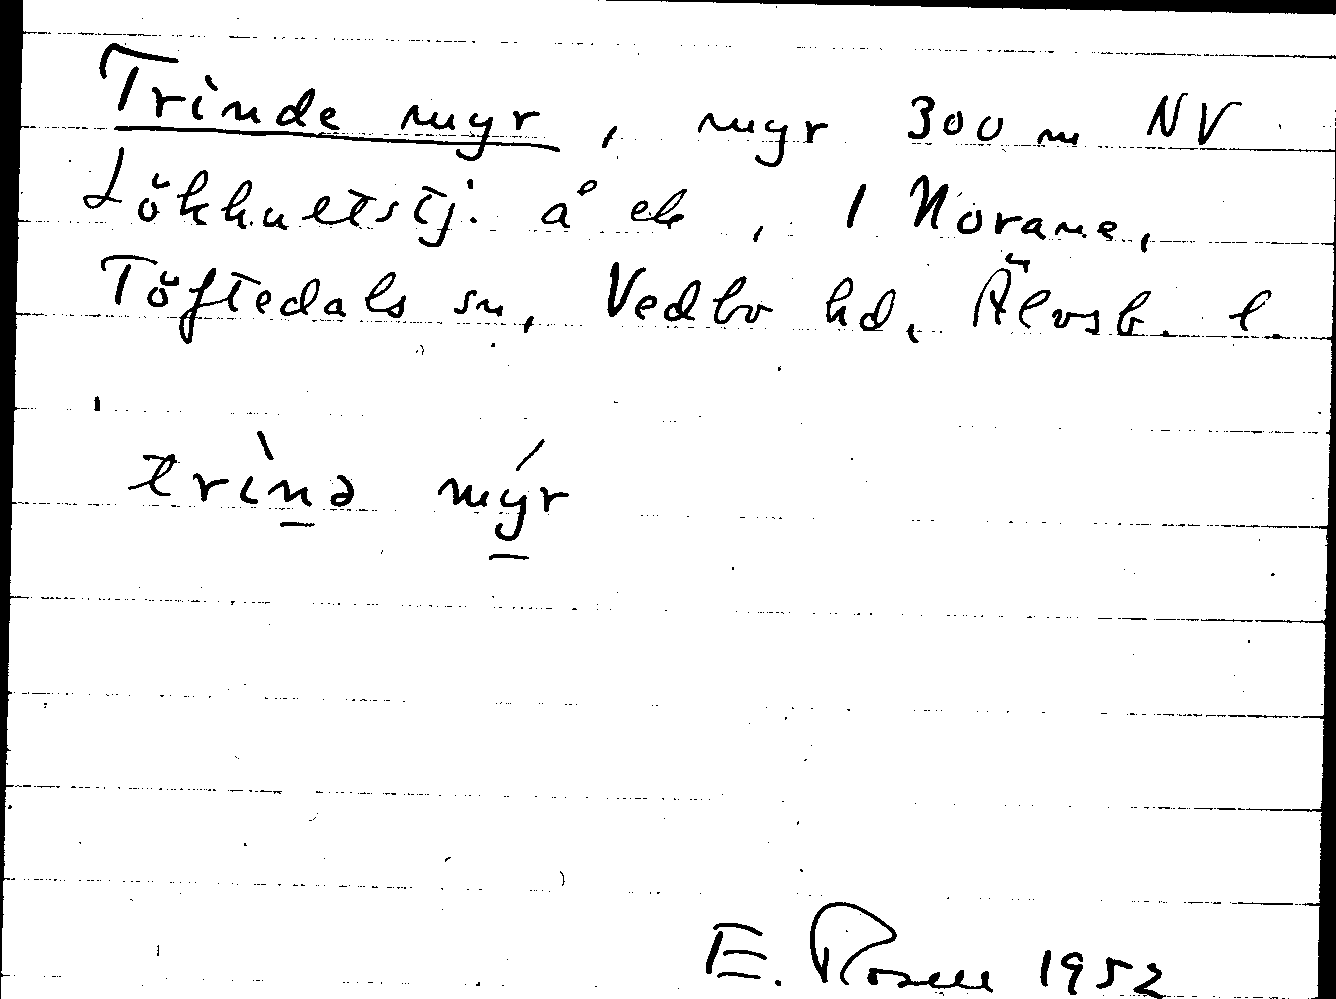 Trinde myr, myr 300 m NV
Lökhultstj. å ek, 1 Norane,
Töftedals sn, Vedbo hd, Älvsb. l.
trìnə mýr
E. Rosell 1952